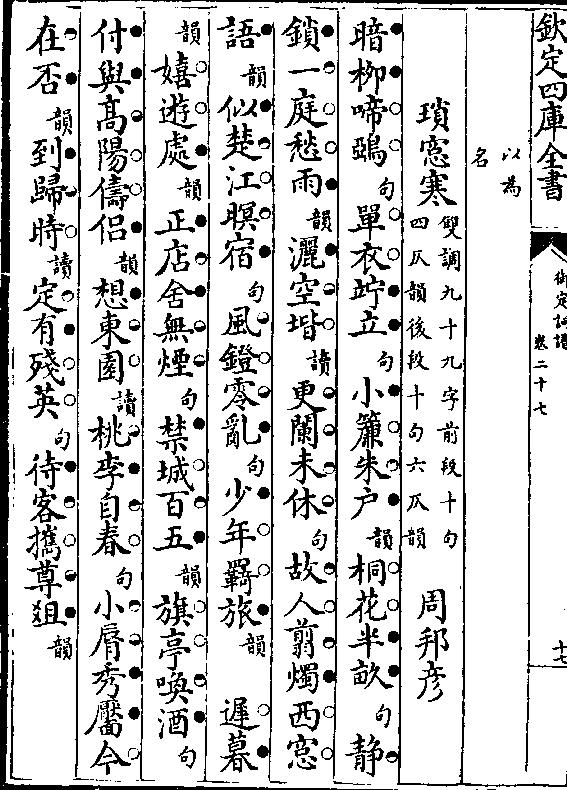 欽定四庫全書
御定詞譜
卷二十七
十七
以為
名
瑣窓寒 雙調九十九字前段十句
四仄韻後段十句六仄韻 周邦彦
暗栁啼鵶句單衣竚立句小簾朱户韻桐花半畝句静
鎖一庭愁雨韻灑空堦讀更闌未休句故人翦燭西窓
語韻似楚江暝宿句風鐙零亂句少年羇旅韻 遲暮
韻嬉遊處韻正店舍無煙句禁城百五韻旗亭喚酒句
付與髙陽儔侣韻想東園讀桃李自春句小脣秀靨今
在否韻到歸時讀定有殘英句待客攜尊俎韻